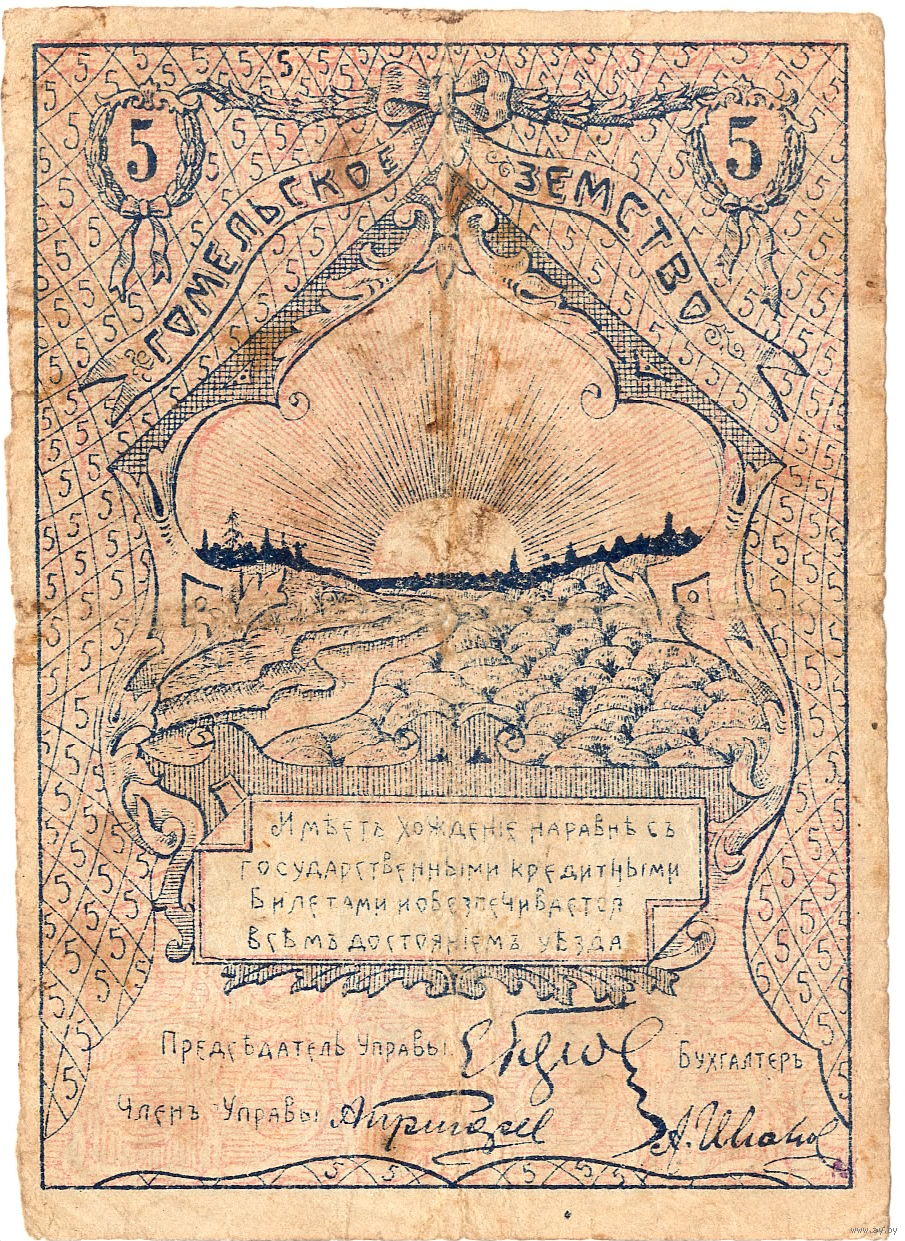 5 5
ГОМЕЛЬСКОЕ ЗЕМСТВО
Имѣетъ хожденіе наравнѣ съ
государственными кредитными
билетами и обезпечивается
всѣмъ достояніемъ уѣзда
Предсѣдатель Управы
Бухгалтеръ
Членъ Управы
www.ay.by